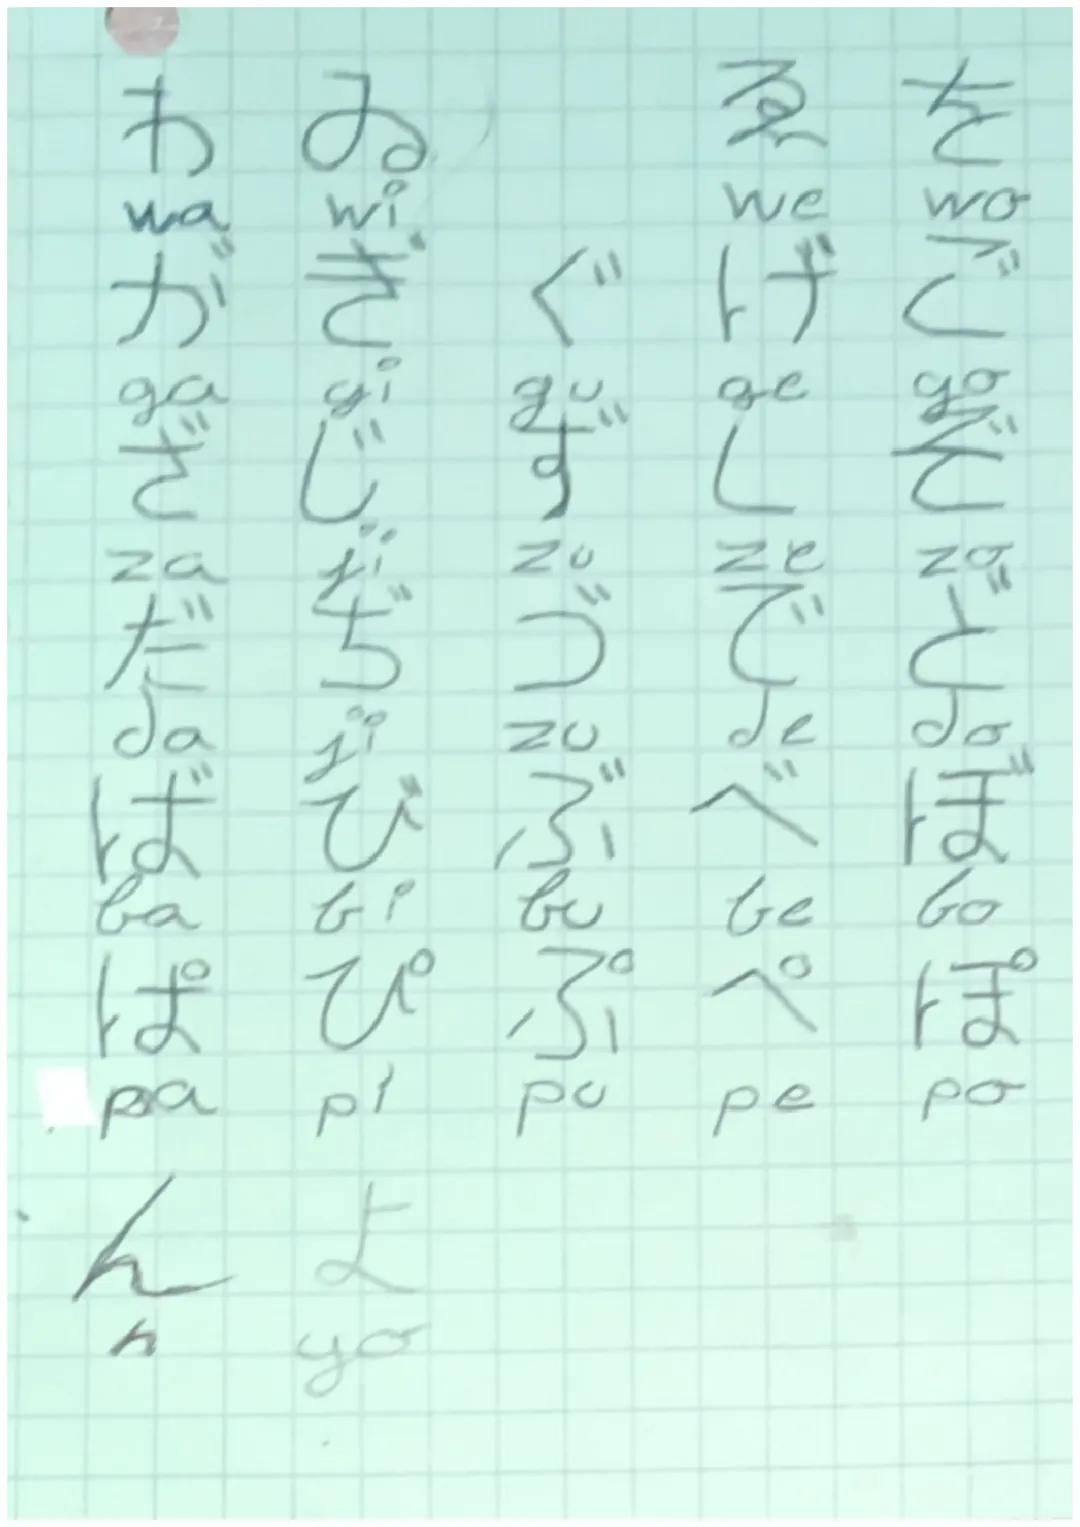 わ ゐ ゑ を
wa wi we wo
が ぎ ぐ げ ご
ga gi gu ge go
ざ じ ず し ぞ
za ji zu ze zo
だ ぢ づ で ど
da ji zu de do
ば び ぶ べ ぼ
ba bi bu be bo
ぱ ぴ ぷ ぺ ぽ
pa pi pu pe po
ん よ
n yo